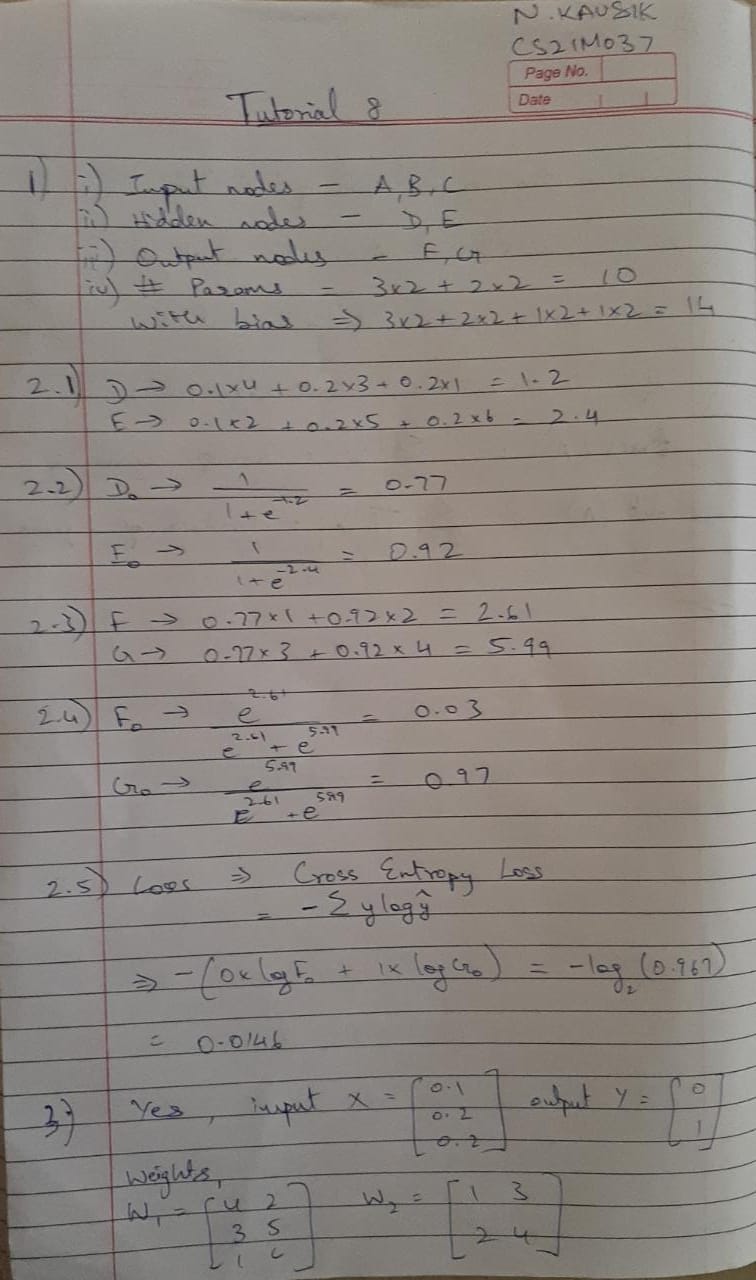 N.KAUSIK
CS21M037
Page No.
Date
Tutorial 8
1) i) Input nodes - A,B,C
ii) Hidden nodes - D,E
iii) Output nodes - F,G
iv) # Params = 3x2 + 2x2 = 10
with bias => 3x2+2x2+1x2+1x2 = 14
2.1) D → 0.1x4 + 0.2x3 + 0.2x1 = 1.2
E → 0.1x2 + 0.2x5 + 0.2x6 = 2.4
2.2) D₀ → 1/(1+e^-1.2) = 0.77
E₀ → 1/(1+e^-2.4) = 0.92
2.3) F → 0.77x1 + 0.92x2 = 2.61
G → 0.77x3 + 0.92x4 = 5.99
2.4) F₀ → e^2.61/(e^2.61 + e^5.99) = 0.03
G₀ → e^5.99/(e^2.61 + e^5.99) = 0.97
2.5) Loss => Cross Entropy Loss
= - Σ y log ŷ
=> - (0x log F₀ + 1x log G₀) = - log₂ (0.967)
= 0.0146
3) Yes, input X = [0.1 0.2 0.2] output Y = [0 1]
Weights,
W₁ = [4 2 3 5 1 6] W₂ = [1 3 2 4]